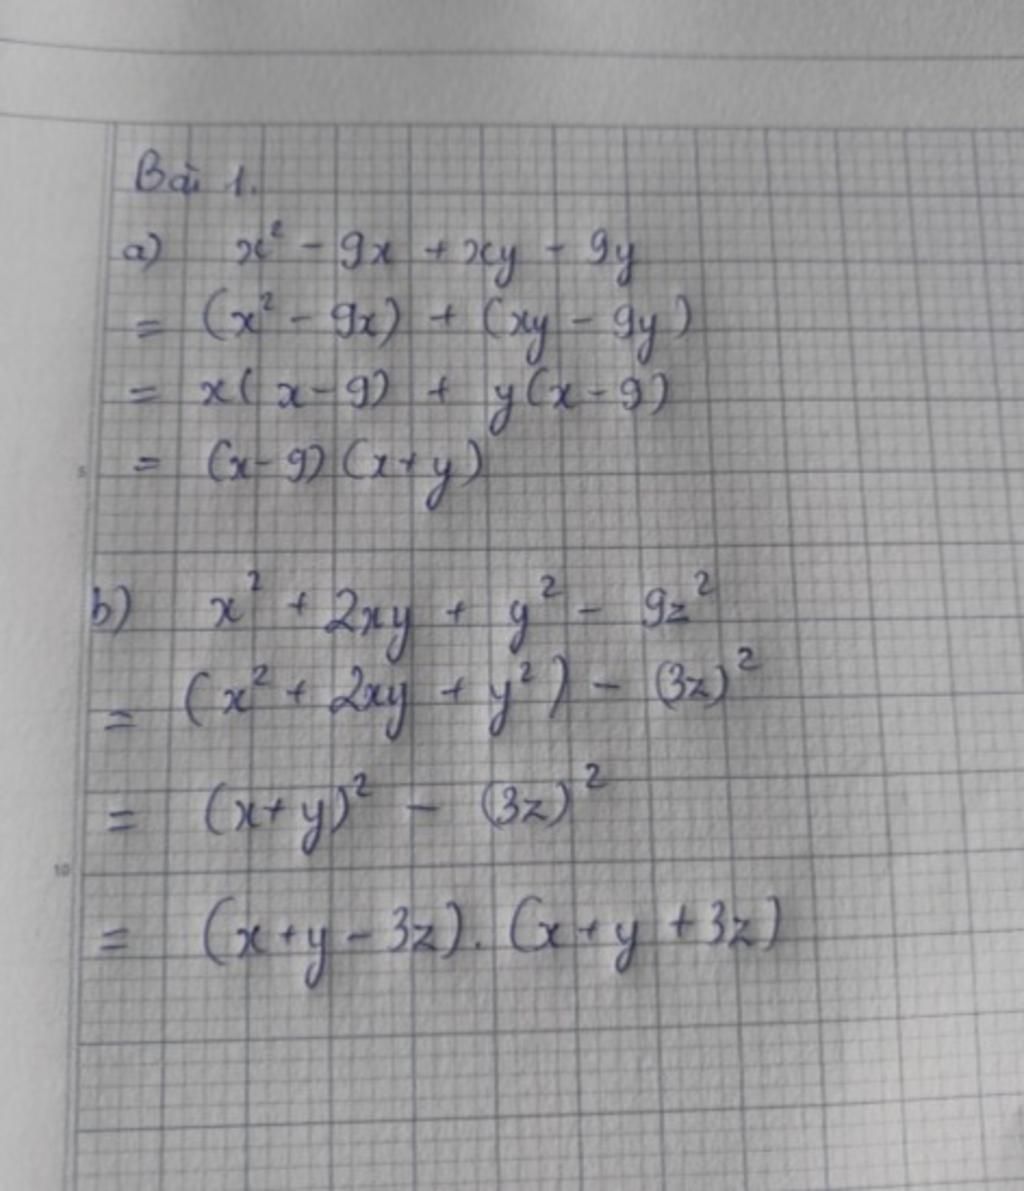 Bài 1.
a) x² - 9x + xy - 9y
= (x² - 9x) + (xy - 9y)
= x(x-9) + y(x-9)
= (x-9)(x+y)
5
b) x² + 2xy + y² - 9z²
= (x² + 2xy + y²) - (3z)²
= (x+y)² - (3z)²
10
= (x+y-3z).(x+y+3z)